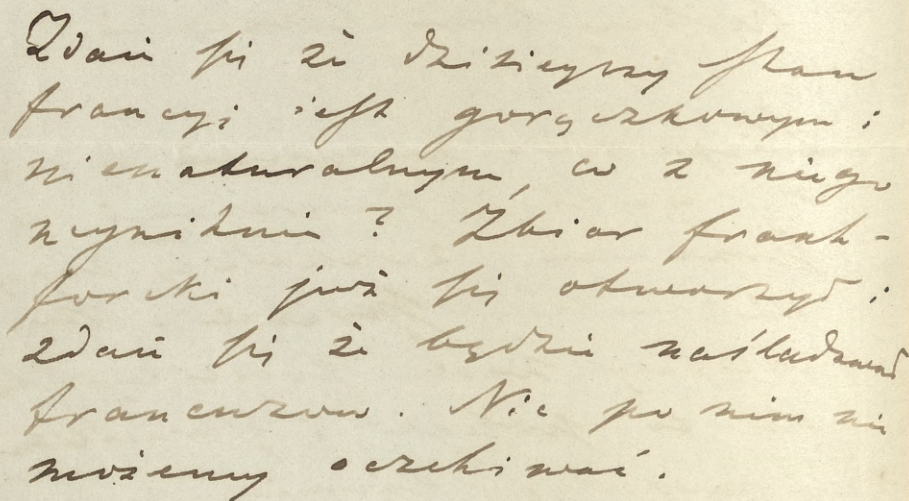 Zdaie się że dzisieyszy stan
francyi iest gorączkowym i
nienaturalnym, co z niego
wyniknie? Zbior frank-
forcki już się otworzył i
zdaie się że będzie naśladował
francuzow. Nic po nim nie
możemy oczekiwać.